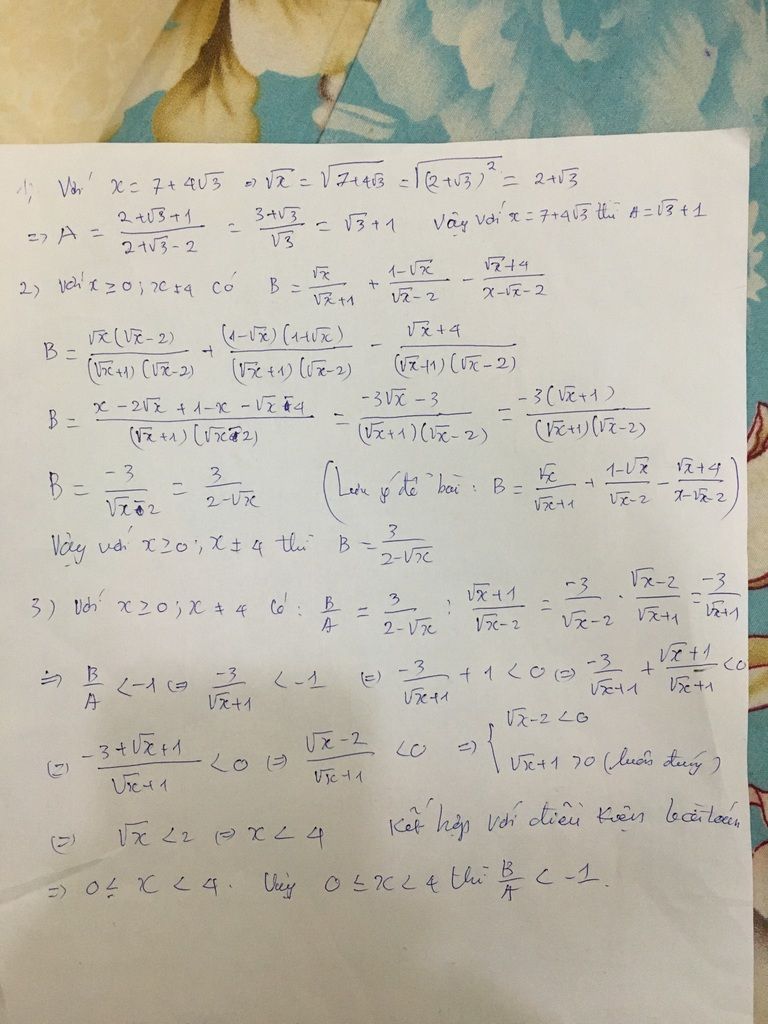 1, Với x = 7 + 4√3 ⇒ √x = √(7+4√3) = √((2+√3)²) = 2+√3
⇒ A = (2+√3+1)/(2+√3-2) = (3+√3)/√3 = √3+1 Vậy với x = 7+4√3 thì A = √3+1
2) Với x ≥ 0; x ≠ 4 có B = √x/(√x+1) + (1-√x)/(√x-2) - (√x+4)/(x-√x-2)
B = √x(√x-2)/((√x+1)(√x-2)) + (1-√x)(1+√x)/((√x+1)(√x-2)) - (√x+4)/((√x+1)(√x-2))
B = (x-2√x+1-x-√x-4)/((√x+1)(√x-2)) = (-3√x-3)/((√x+1)(√x-2)) = -3(√x+1)/((√x+1)(√x-2))
B = -3/(√x-2) = 3/(2-√x) (Lưu ý đề bài: B = √x/(√x+1) + (1-√x)/(√x-2) - (√x+4)/(x-√x-2))
Vậy với x ≥ 0; x ≠ 4 thì B = 3/(2-√x)
3) Với x ≥ 0; x ≠ 4 có: B/A = 3/(2-√x) : (√x+1)/(√x-2) = -3/(√x-2) · (√x-2)/(√x+1) = -3/(√x+1)
⇒ B/A < -1 ⇔ -3/(√x+1) < -1 ⇔ -3/(√x+1) + 1 < 0 ⇔ -3/(√x+1) + (√x+1)/(√x+1) < 0
⇔ (-3+√x+1)/(√x+1) < 0 ⇔ (√x-2)/(√x+1) < 0 ⇒ { √x-2 < 0
√x+1 > 0 (luôn đúng)
⇔ √x < 2 ⇔ x < 4 Kết hợp với điều kiện bài toán
⇒ 0 ≤ x < 4. Vậy 0 ≤ x < 4 thì B/A < -1.